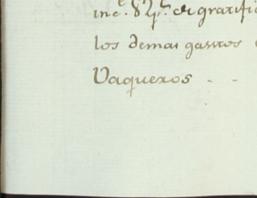 inc.ᵉ 82 p.ˢ de gratifi
los demas gastos
Vaqueros - -